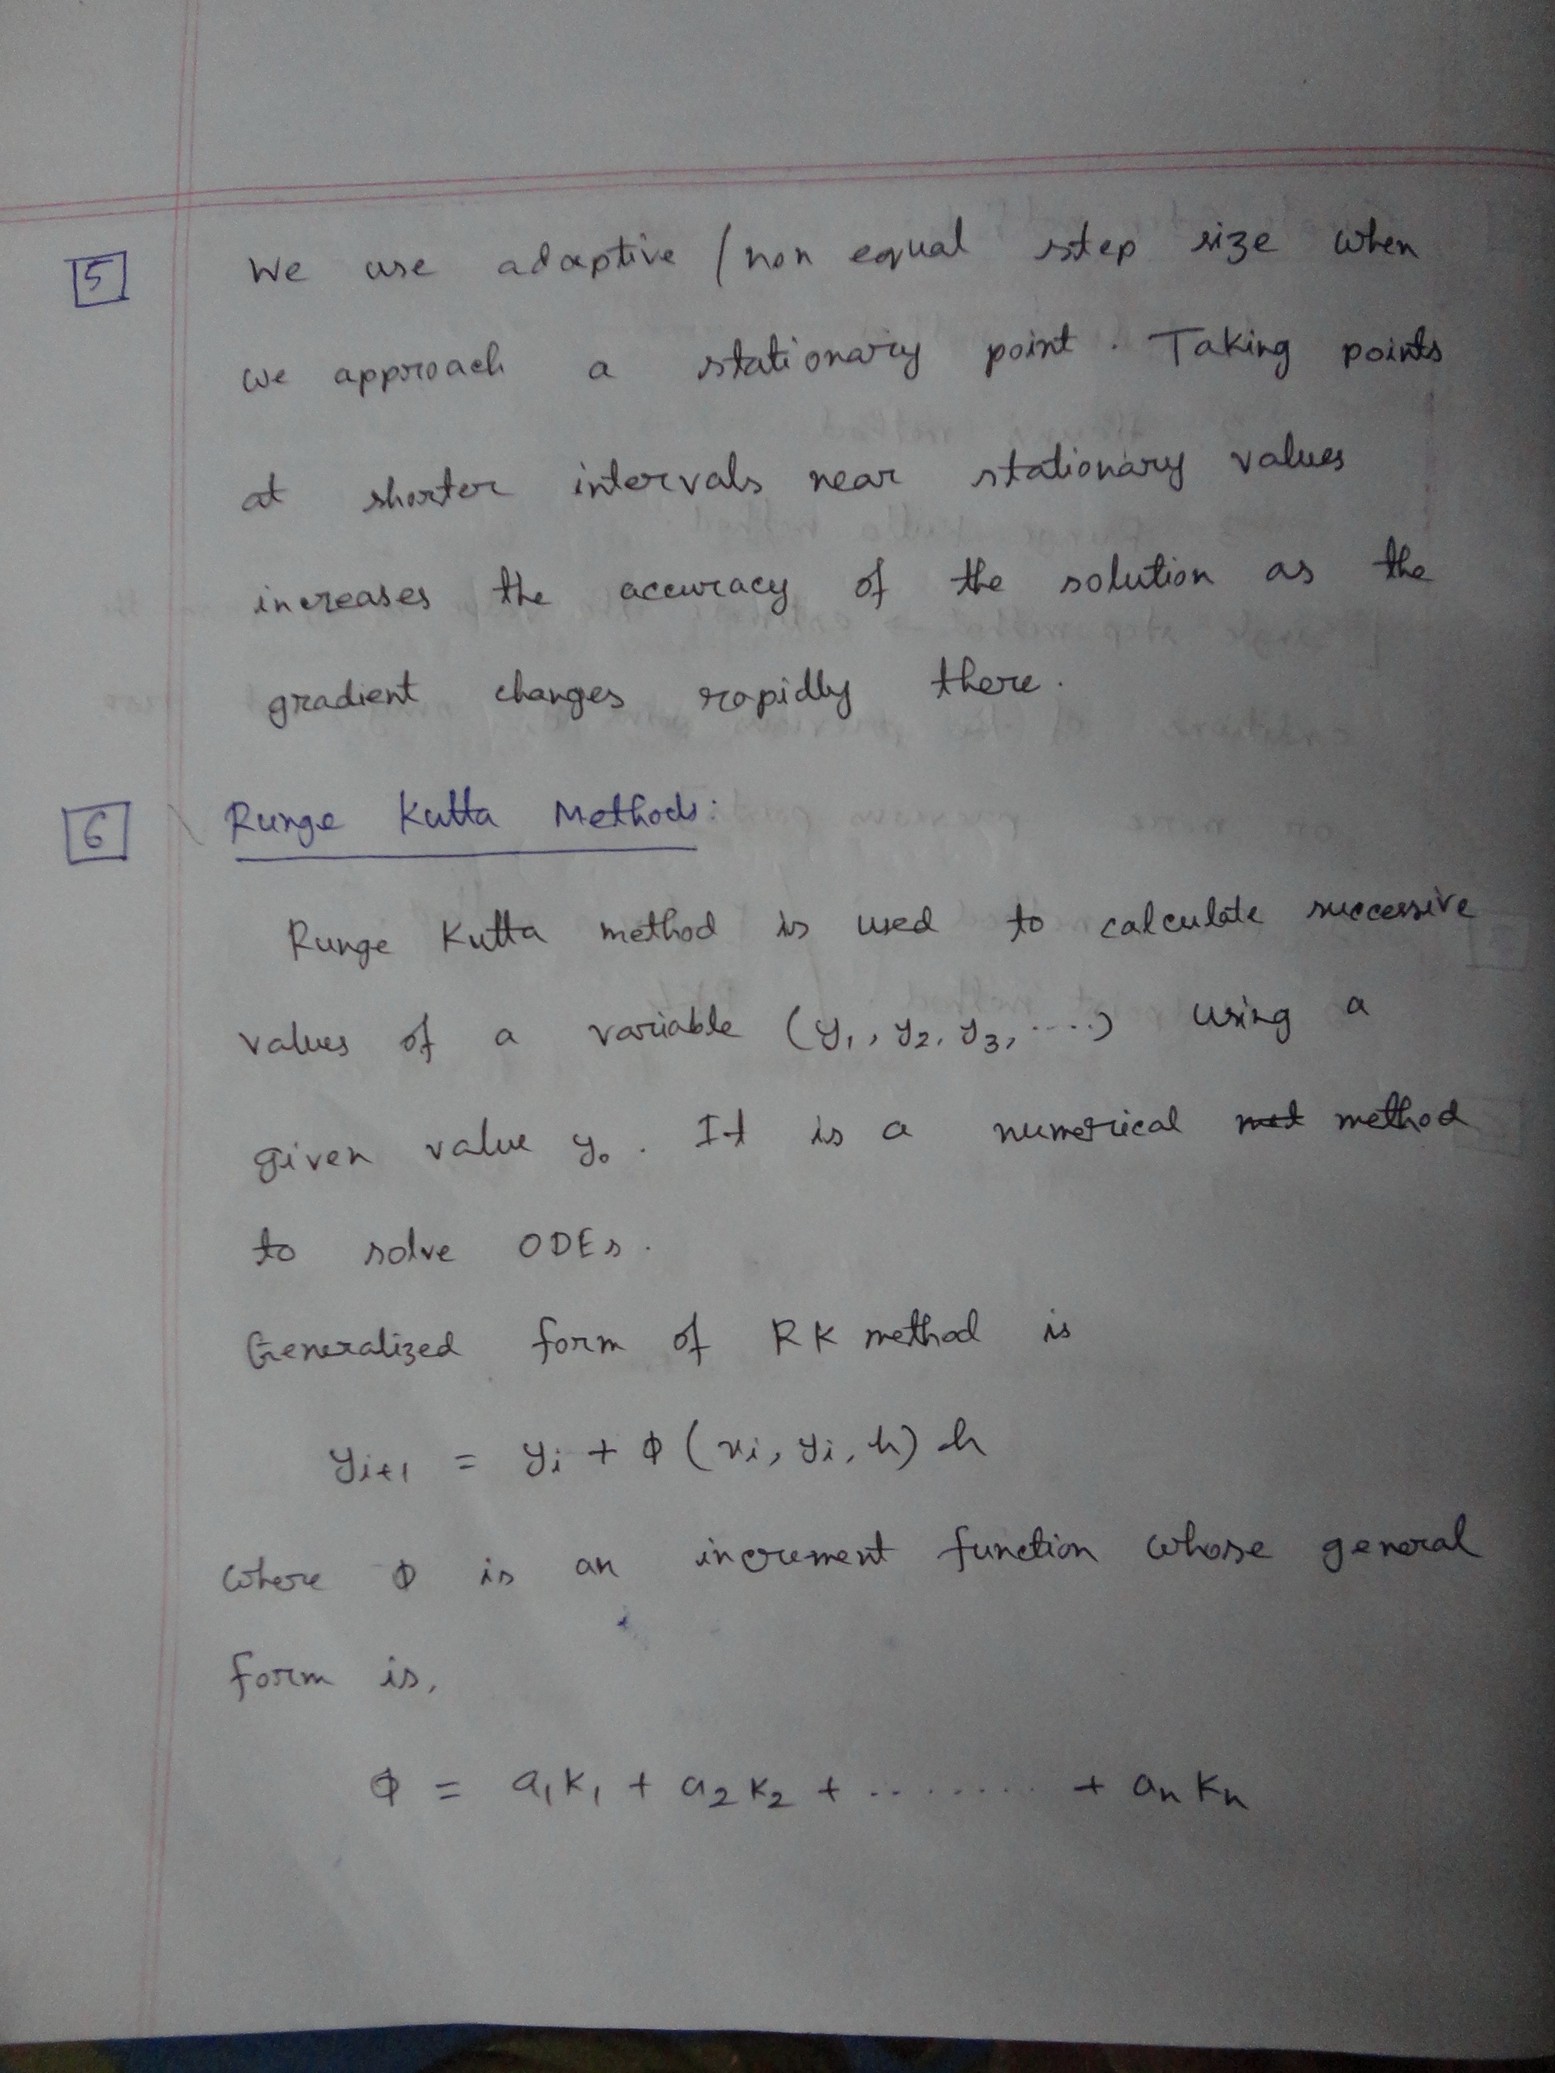 5 We use adaptive / non equal step size when
we approach a stationary point. Taking points
at shorter intervals near stationary values
increases the accuracy of the solution as the
gradient changes rapidly there.
6 Runge Kutta Methods:
Runge Kutta method is used to calculate successive
values of a variable (y₁, y₂, y₃, ....) using a
given value y₀. It is a numerical met method
to solve ODEs.
Generalized form of RK method is
yᵢ₊₁ = yᵢ + Φ (xᵢ, yᵢ, h) h
where Φ is an increment function whose general
form is,
Φ = a₁k₁ + a₂k₂ + ......... + aₙkₙ